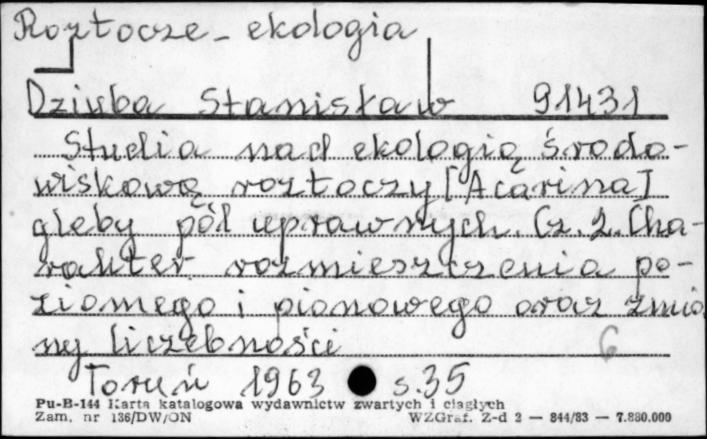 Roztocze - ekologia
Dziuba Stanisław 91431
Studia nad ekologią środo-
wiskową roztoczy [Acarina]
gleby pól uprawnych. Cz. 2. Cha-
rakter rozmieszczenia po-
ziomego i pionowego oraz zmia
ny liczebności 6
Toruń 1963 s. 35
Pu-B-144 Karta katalogowa wydawnictw zwartych i ciągłych
Zam. nr 136/DW/ON WZGraf. Z-d 2 — 844/83 — 7.880.000